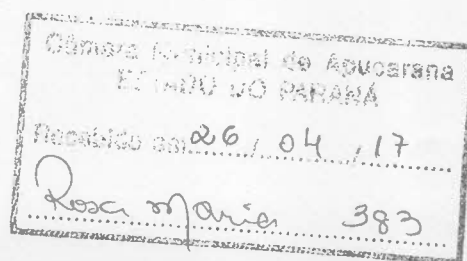 Câmara Municipal de Apucarana
ESTADO DO PARANÁ
Recebido em 26 / 04 / 17
Rosa Maria 383